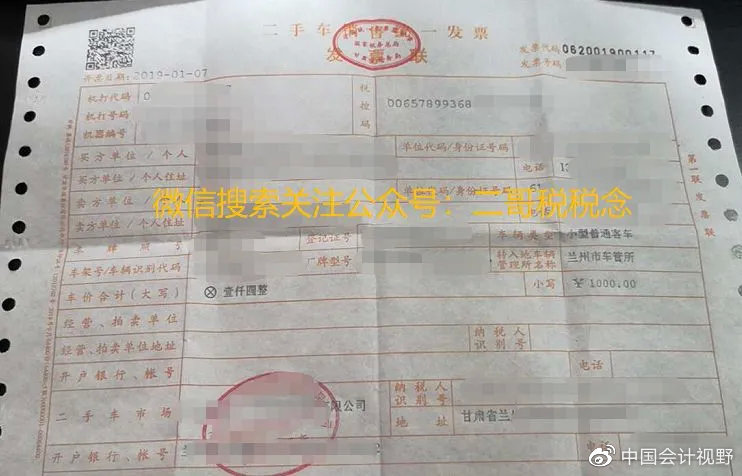 二手车销售统一发票
发票联
发票代码 062001900117
发票号码
开票日期: 2019-01-07
机打代码 0
机打号码
机器编号
税控码
00657899368
买方单位/个人
单位代码/身份证号码
买方单位/个人住址
电话 13
卖方单位/个人
单位代码/身份证号码 61
卖方单位/个人住址
微信搜索关注公众号:二哥税税念
车牌照号
登记证号
车辆类型 小型普通客车
车架号/车辆识别代码
厂牌型号
转入地车辆管理所名称 兰州市车管所
车价合计(大写) ⊗壹仟圆整
小写 ¥1000.00
经营、拍卖单位
经营、拍卖单位地址
纳税人识别号
开户银行、帐号
电话
二手车市场
有限公司
纳税人识别号
地址 甘肃省兰
开户银行、帐号
电话
第一联 发票联
@中国会计视野